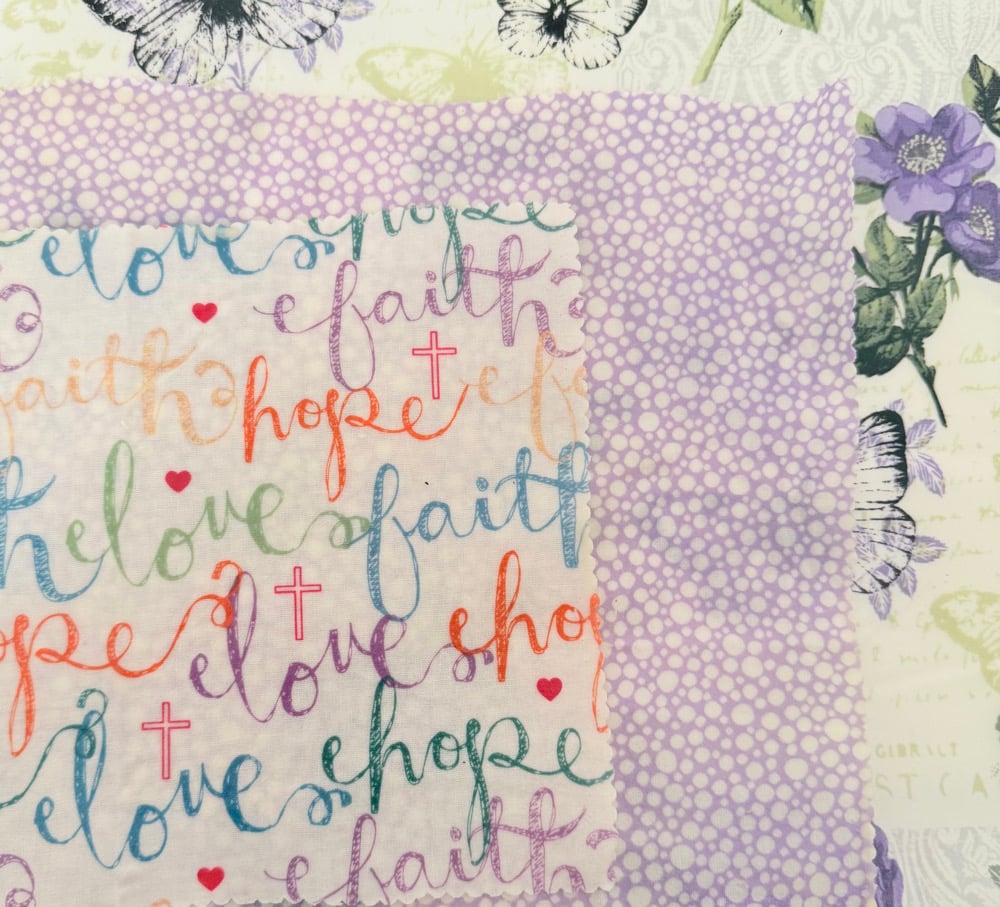 love hope
faith
faith hope
love faith
hope love hope
love hope
faith
GIBRALT
ST CA